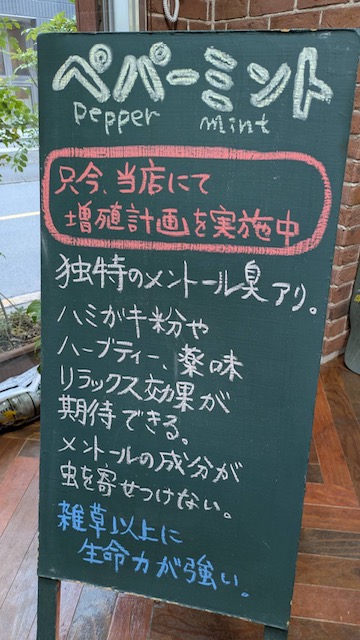 ペパーミント
pepper mint
只今、当店にて
増殖計画を実施中
独特のメントール臭アリ。
ハミガキ粉や
ハーブティー、薬味
リラックス効果が
期待できる。
メントールの成分が
虫を寄せつけない。
雑草以上に
生命力が強い。